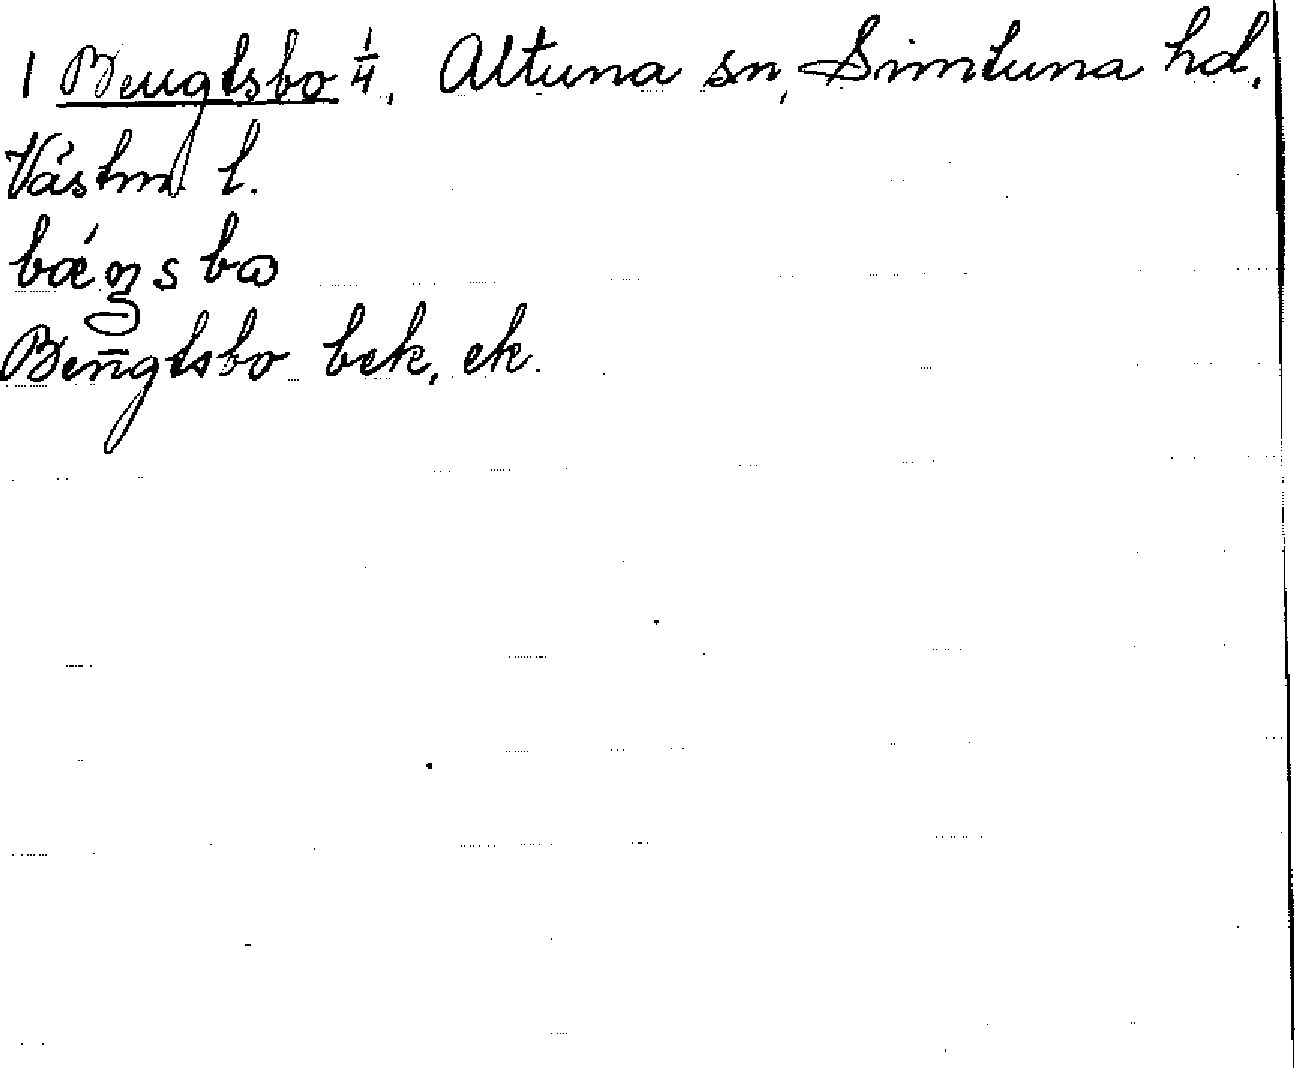 1 Bengtsbo 1/4, Altuna sn, Simtuna hd,
Västm l.
bǽŋsbω
Bengtsbo bek, ek.